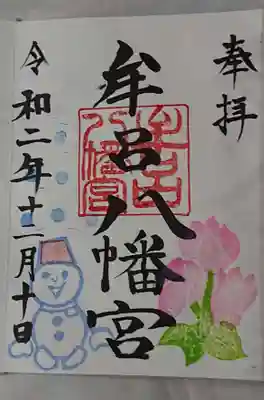 奉拝
牟呂八幡宮
牟呂八幡宮
令和二年十二月十日